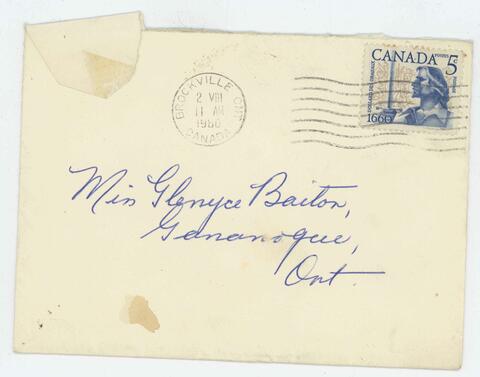 BROCKVILLE ONT
2 VIII
11 AM
1960
CANADA
CANADA 5
POSTES POSTAGE
DOLLARD DES ORMEAUX
1660
Miss Glenyce Baiton,
Gananoque,
Ont.